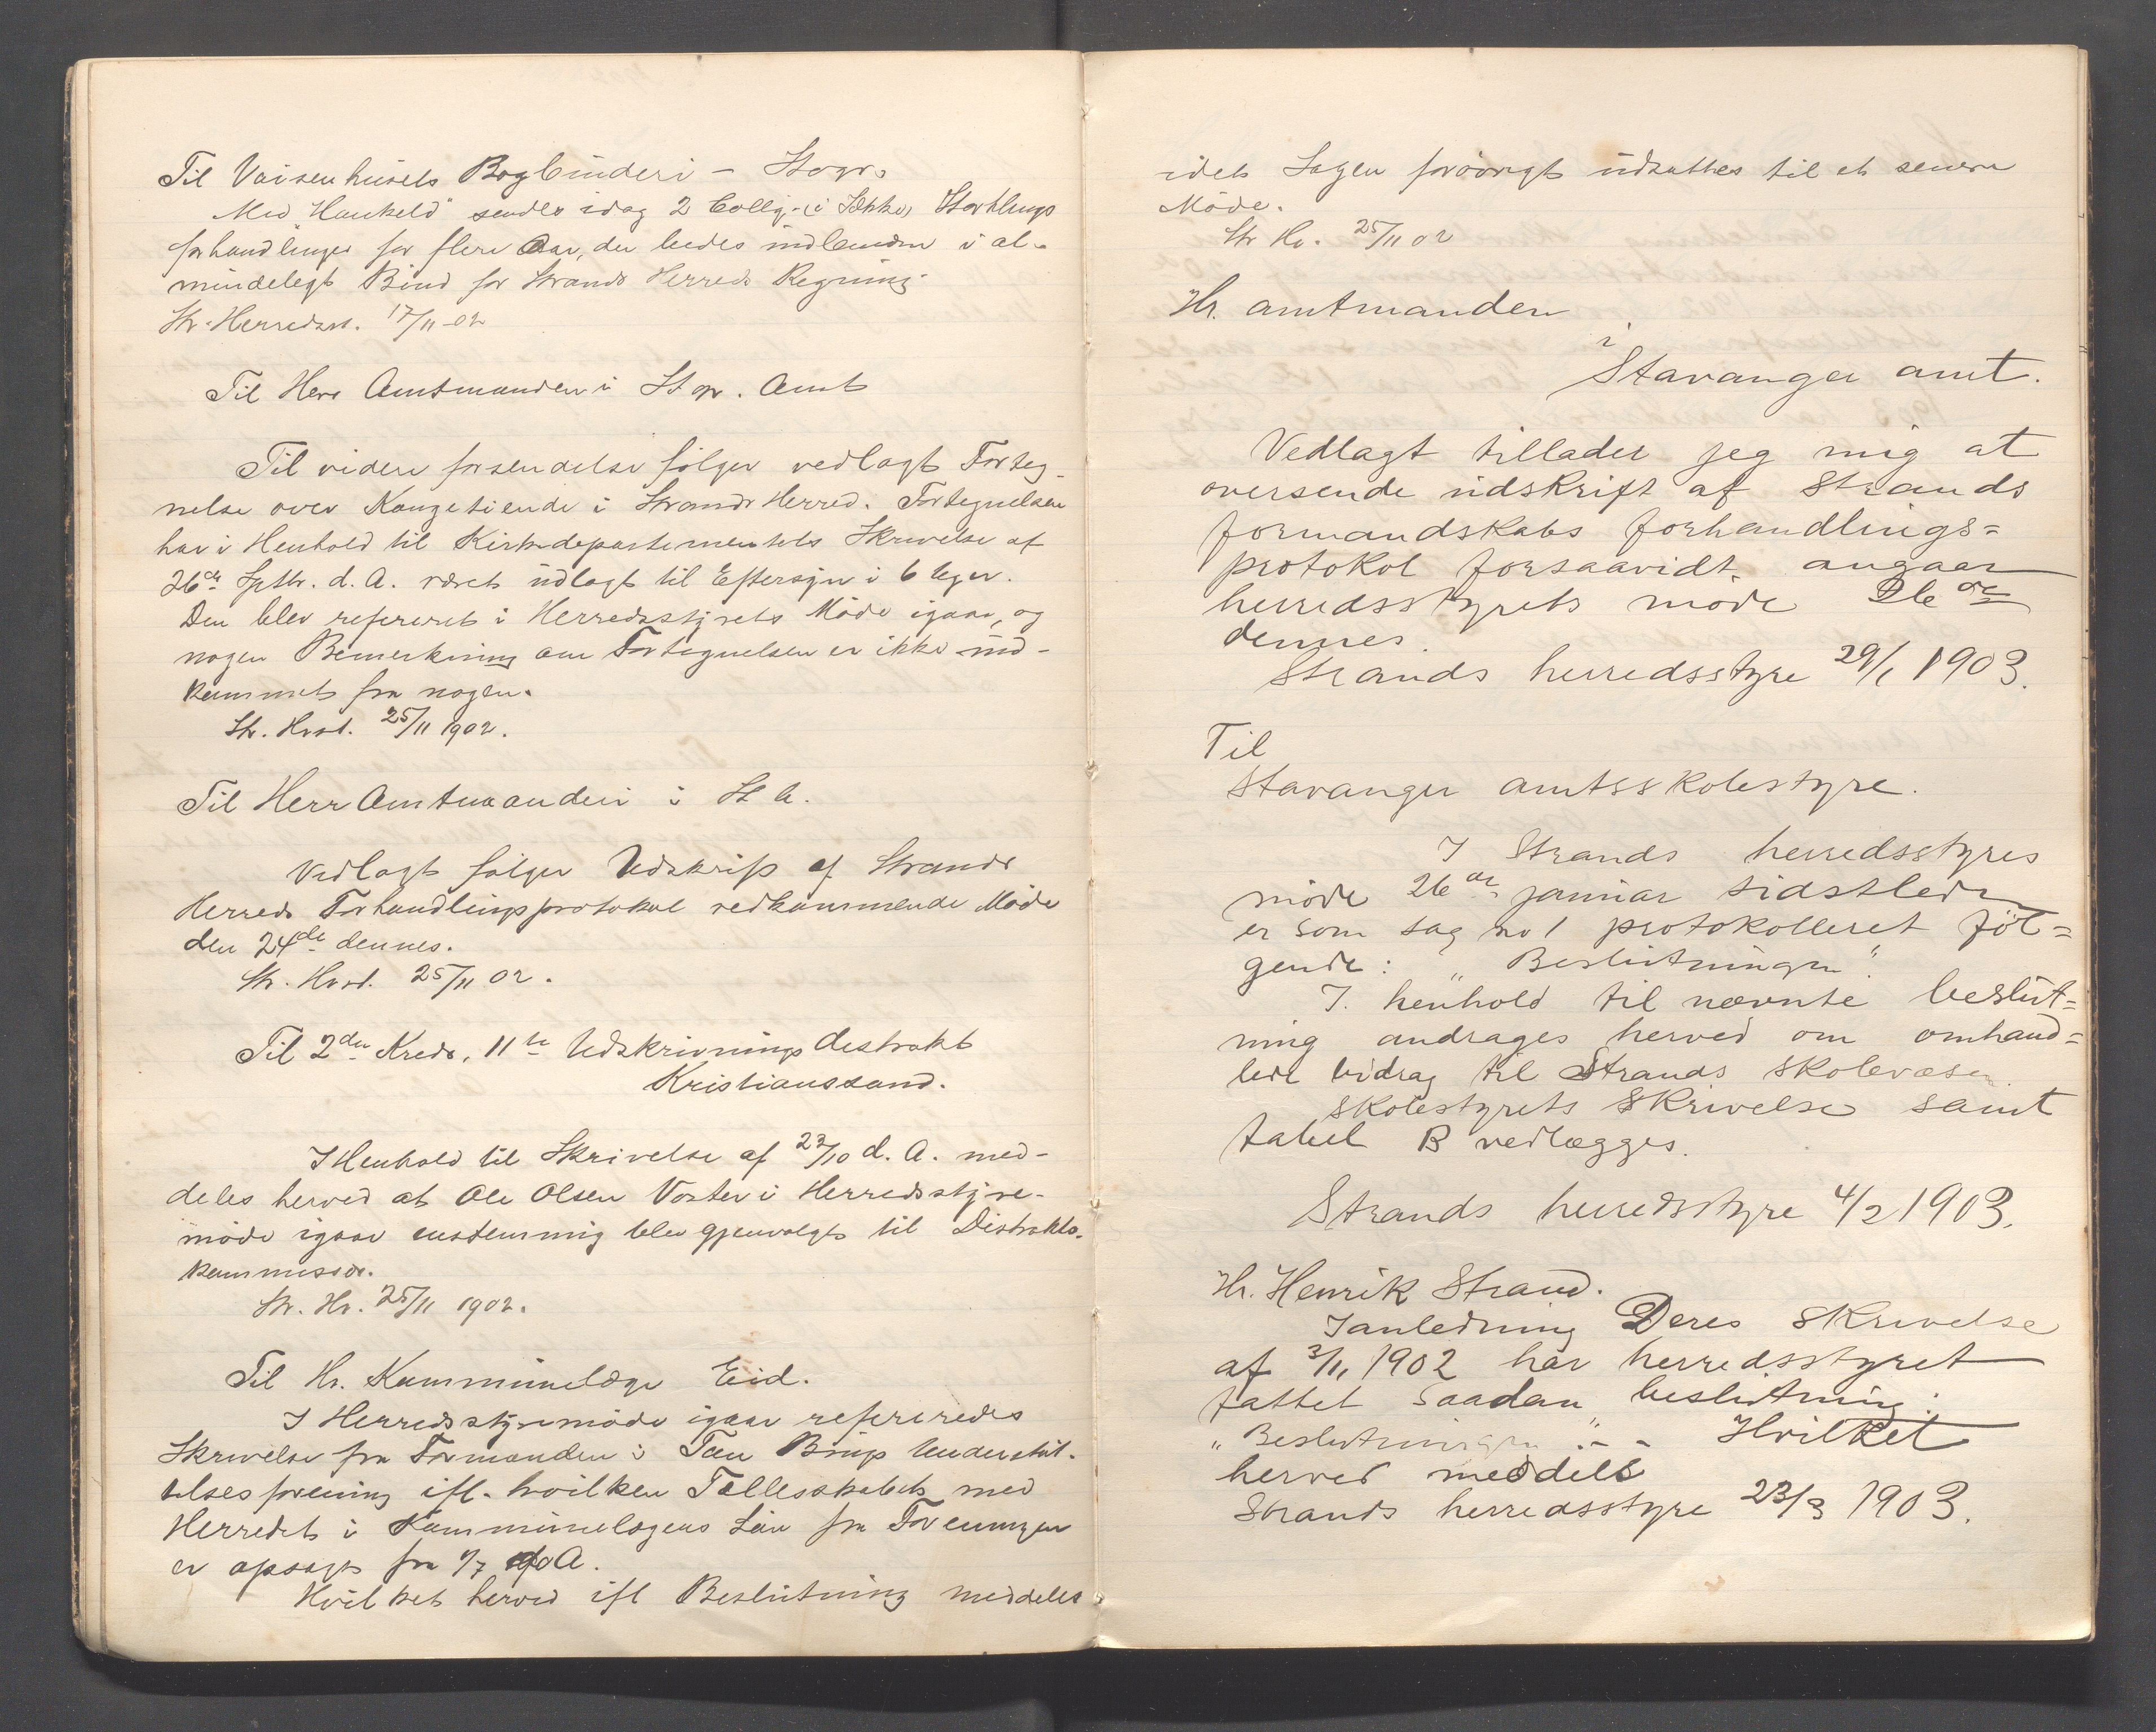 Til Vaisenhusets Bogbinderi – Stgr.
Med "Haukeld" sendes idag 2 Collq. (i Sække) Storthings
forhandlinger for flere Aar, der bedes indbunden i al-
mindeligt Bind for Strands Herreds Regning.
Str. Herredsst. 17/11-02
Til Herr Amtmanden i Stgr. Amt
Til videre forsendelse følger vedlagt Forteg-
nelse over Kongetiende i Strands Herred. Fortegnelsen
har i Henhold til Kirkedepartementets Skrivelse af
26de Sptbr. d. A. været udlagt til Eftersyn i 6 Uger.
Den blev refereret i Herredsstyrets Møde igaar, og
nogen Bemerkning om Fortegnelsen er ikke ind-
kommet fra nogen.
Str. Hrst. 25/11 1902.
Til Herr Amtmanden i St. A.
Vedlagt følger Udskrift af Strands
Herreds Forhandlingsprotokol vedkommende Møde
den 24de dennes.
Str. Hrst. 25/11 02.
Til 2den Kreds, 11te Udskrivningsdistrikt
Kristianssand.
I Henhold til Skrivelse af 23/10 d. A. med-
deles herved at Ole Olsen Voster i Herredsstyre-
møde igaar enstemmig blev gjenvalgt til Distrikts-
kommissær.
Str. Hr. 25/11 1902.
Til Hr. Kommunelæge Eid.
I Herredsstyremøde igaar refereredes
Skrivelse fra Formanden i Tau Brugs Understøt-
telsesforening ifl. hvilken Fællesskabet med
Herredet i Kommunelægens Løn fra Foreningen
er opsagt fra 1/7 d. A.
Hvilket herved ifl Beslutning meddeles
idet Sagen forøvrigt udsattes til et senere
Møde.
Str. Hr. 25/11 02
Hr. amtmanden
i
Stavanger amt.
Vedlagt tillader jeg mig at
oversende udskrift af Strands
formandskabs forhandlings=
protokol forsaavidt angaar
herredsstyrets møde 26de
dennes.
Strands herredsstyre 29/1 1903.
Til
Stavanger amtsskolestyre.
I Strands herredsstyres
møde 26de januar sidstleden
er som sag no 1 protokolleret føl=
gende: "Beslutningen".
I henhold til nævnte beslut=
ning andrages herved om omhand=
lede bidrag til Strands skolevæsen.
Skolestyrets skrivelse samt
tabel B vedlægges.
Strands herredsstyre 4/2 1903.
Hr. Henrik Strand.
I anledning Deres skrivelse
af 3/11 1902 har herredsstyret
fattet saadan beslutning:
"Beslutningen" . – – Hvilket
herved meddeles
Strands herredsstyre 23/3 1903.